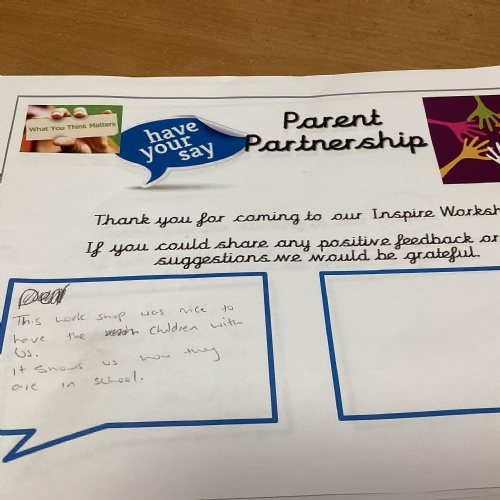 What You Think Matters
have
your
say
Parent
Partnership
Thank you for coming to our Inspire Worksh
If you could share any positive feedback or
suggestions we would be grateful.
This work shop was nice to
have the children with
Us.
It shows us how they
are in school.